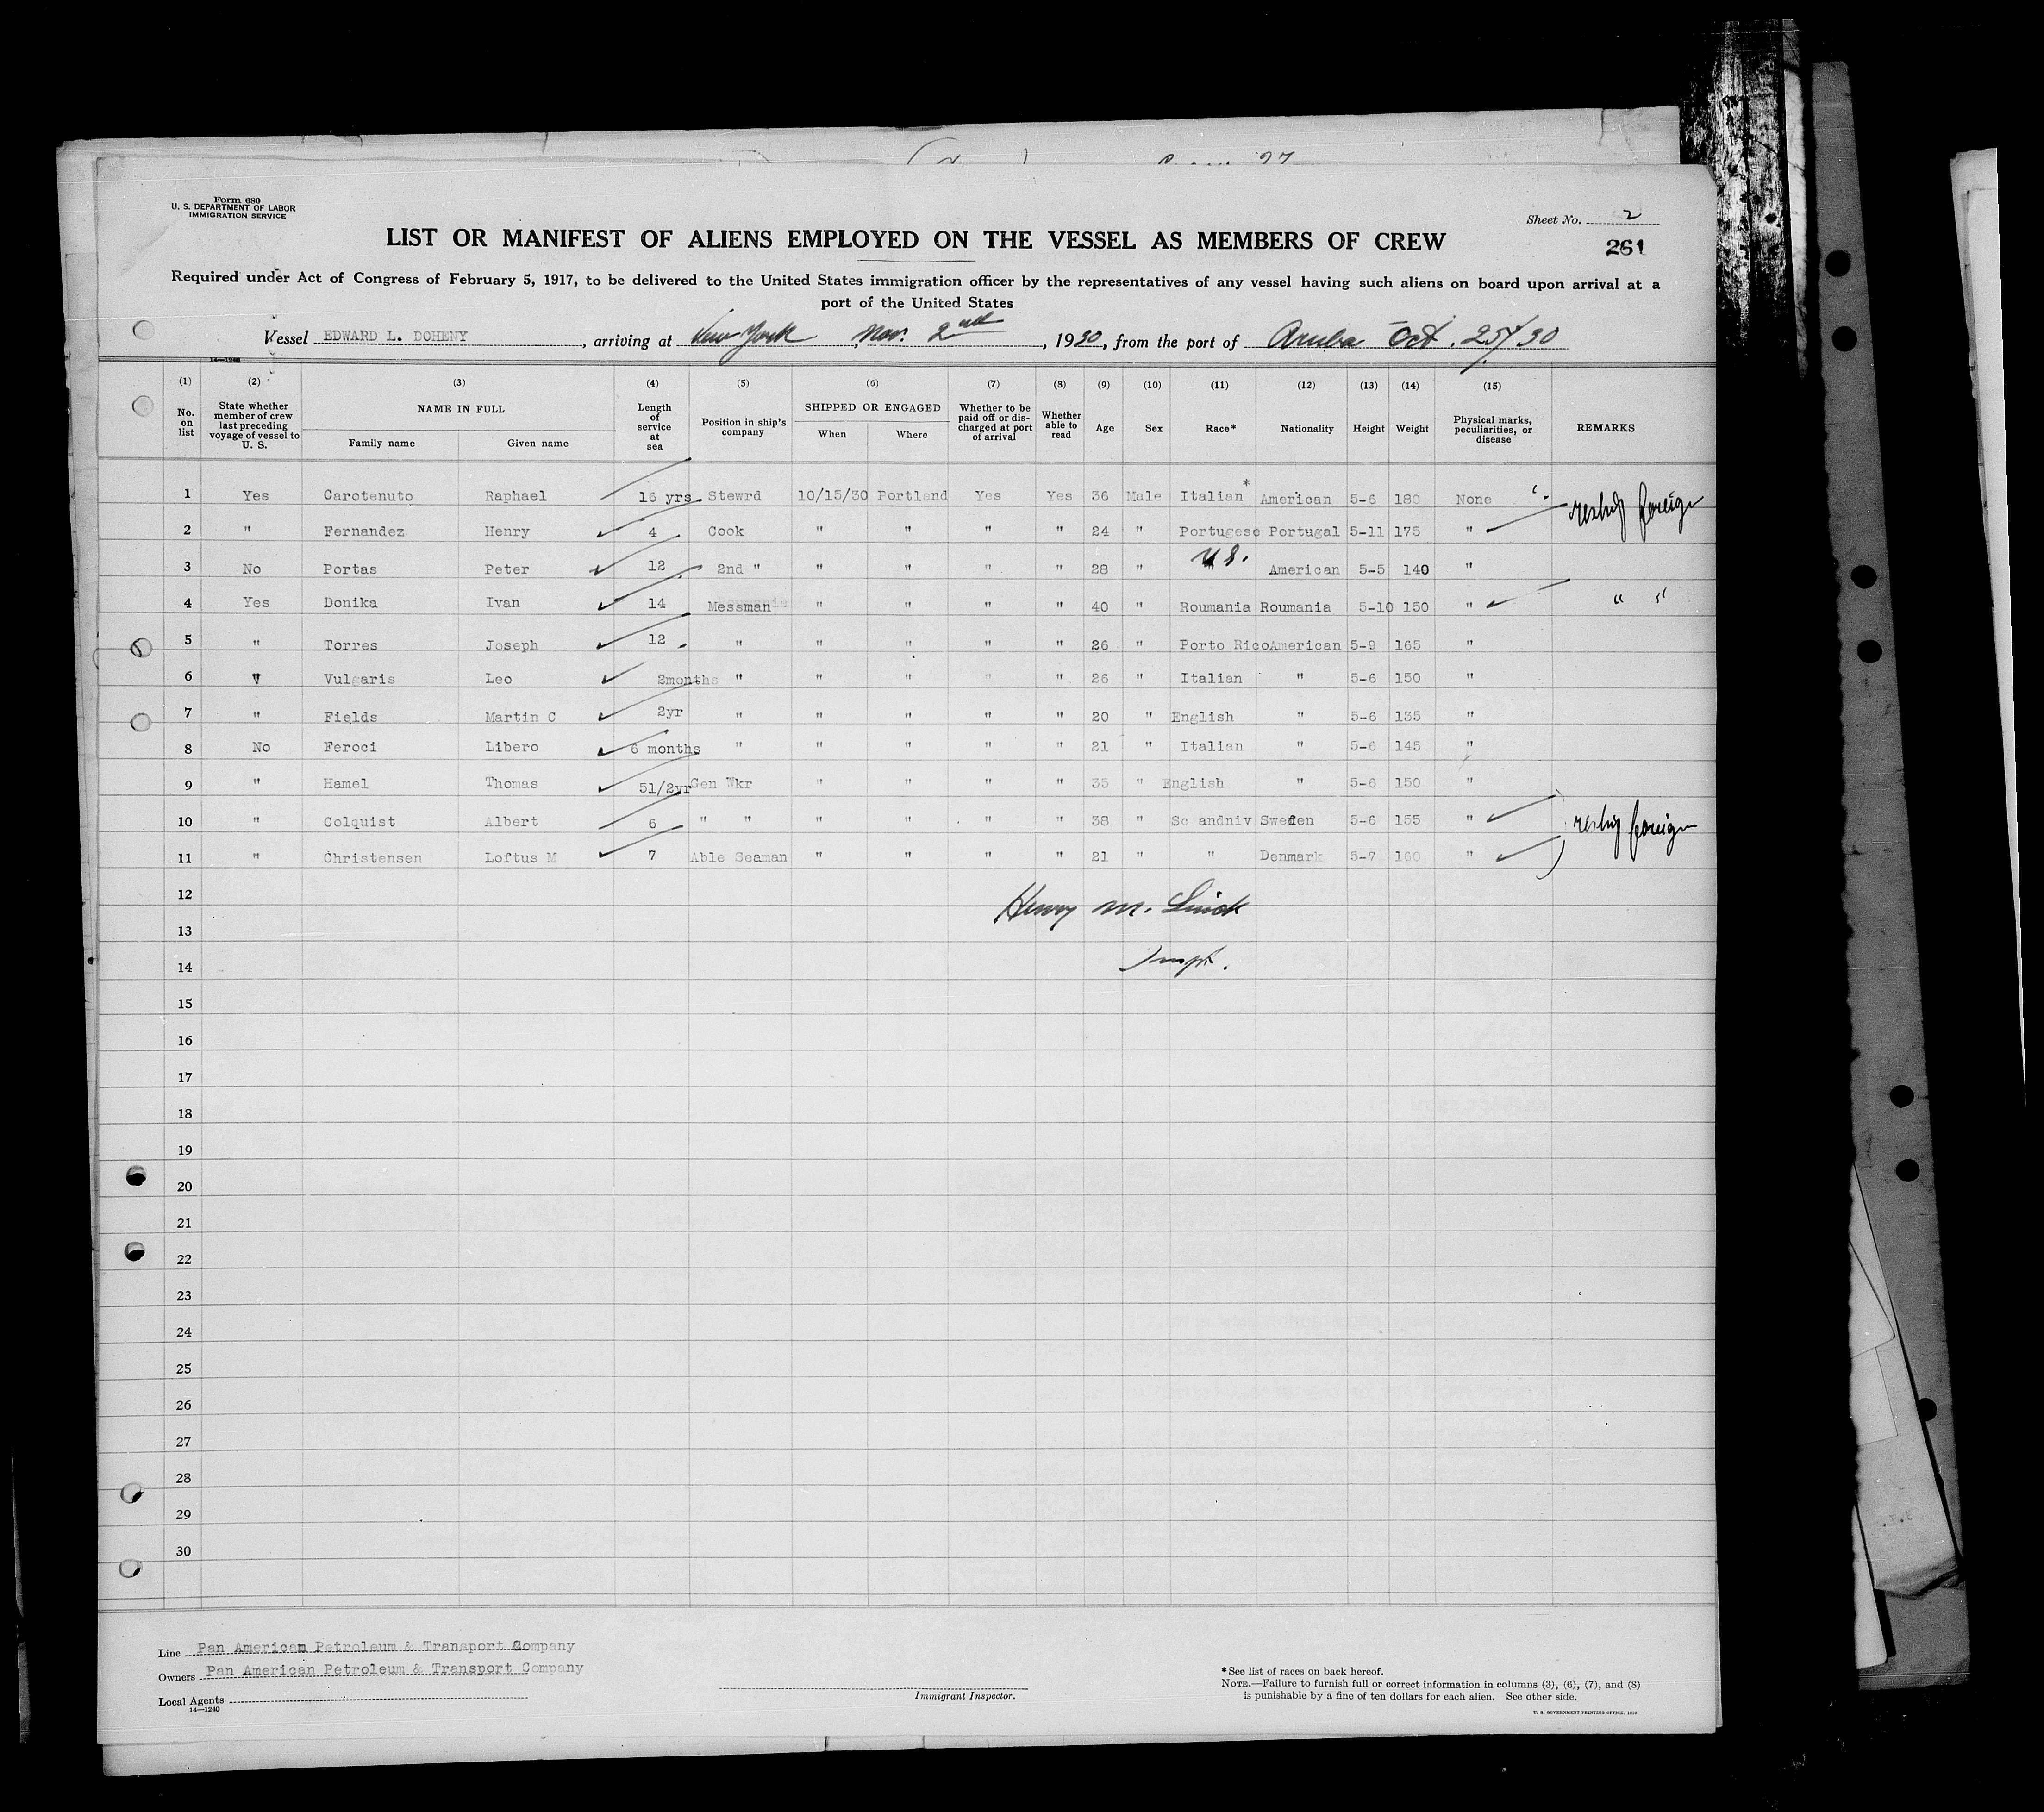 Form 680
U. S. DEPARTMENT OF LABOR
IMMIGRATION SERVICE
Sheet No. 2
LIST OR MANIFEST OF ALIENS EMPLOYED ON THE VESSEL AS MEMBERS OF CREW
261
Required under Act of Congress of February 5, 1917, to be delivered to the United States immigration officer by the representatives of any vessel having such aliens on board upon arrival at a
port of the United States
Vessel EDWARD L. DOHENY, arriving at New York Nov. 2nd, 1930, from the port of Aruba Oct. 25/30
14—1240
(1) (2) (3) (4) (5) (6) (7) (8) (9) (10) (11) (12) (13) (14) (15)
No. on list State whether member of crew last preceding voyage of vessel to U. S. NAME IN FULL Family name Given name Length of service at sea Position in ship's company SHIPPED OR ENGAGED When Where Whether to be paid off or discharged at port of arrival Whether able to read Age Sex Race* Nationality Height Weight Physical marks, peculiarities, or disease REMARKS
1 Yes Carotenuto Raphael 16 yrs Stewrd 10/15/30 Portland Yes Yes 36 Male Italian * American 5-6 180 None
2 " Fernandez Henry 4 Cook " " " " 24 " Portugese Portugal 5-11 175 " reship foreign
3 No Portas Peter 12 2nd " " " " " 28 " U S. American 5-5 140 "
4 Yes Donika Ivan 14 Messman " " " " 40 " Roumania Roumania 5-10 150 " " "
5 " Torres Joseph 12 " " " " " 26 " Porto Rico American 5-9 165 "
6 " Vulgaris Leo 2months " " " " " 26 " Italian " 5-6 150 "
7 " Fields Martin C 2yr " " " " " 20 " English " 5-6 135 "
8 No Feroci Libero 6 months " " " " " 21 " Italian " 5-6 145 "
9 " Hamel Thomas 51/2yr Gen Wkr " " " " 35 " English " 5-6 150 "
10 " Colquist Albert 6 " " " " " " 38 " Sc andniv Sweden 5-6 155 " reship foreign
11 " Christensen Loftus M 7 Able Seaman " " " " 21 " " Denmark 5-7 160 "
12
Henry M.
13
14
15
16
17
18
19
20
21
22
23
24
25
26
27
28
29
30
Line Pan American Petroleum & Transport Company
Owners Pan American Petroleum & Transport Company
Local Agents
14—1240
Immigrant Inspector.
*See list of races on back hereof.
NOTE.—Failure to furnish full or correct information in columns (3), (6), (7), and (8)
is punishable by a fine of ten dollars for each alien. See other side.
U. S. GOVERNMENT PRINTING OFFICE,